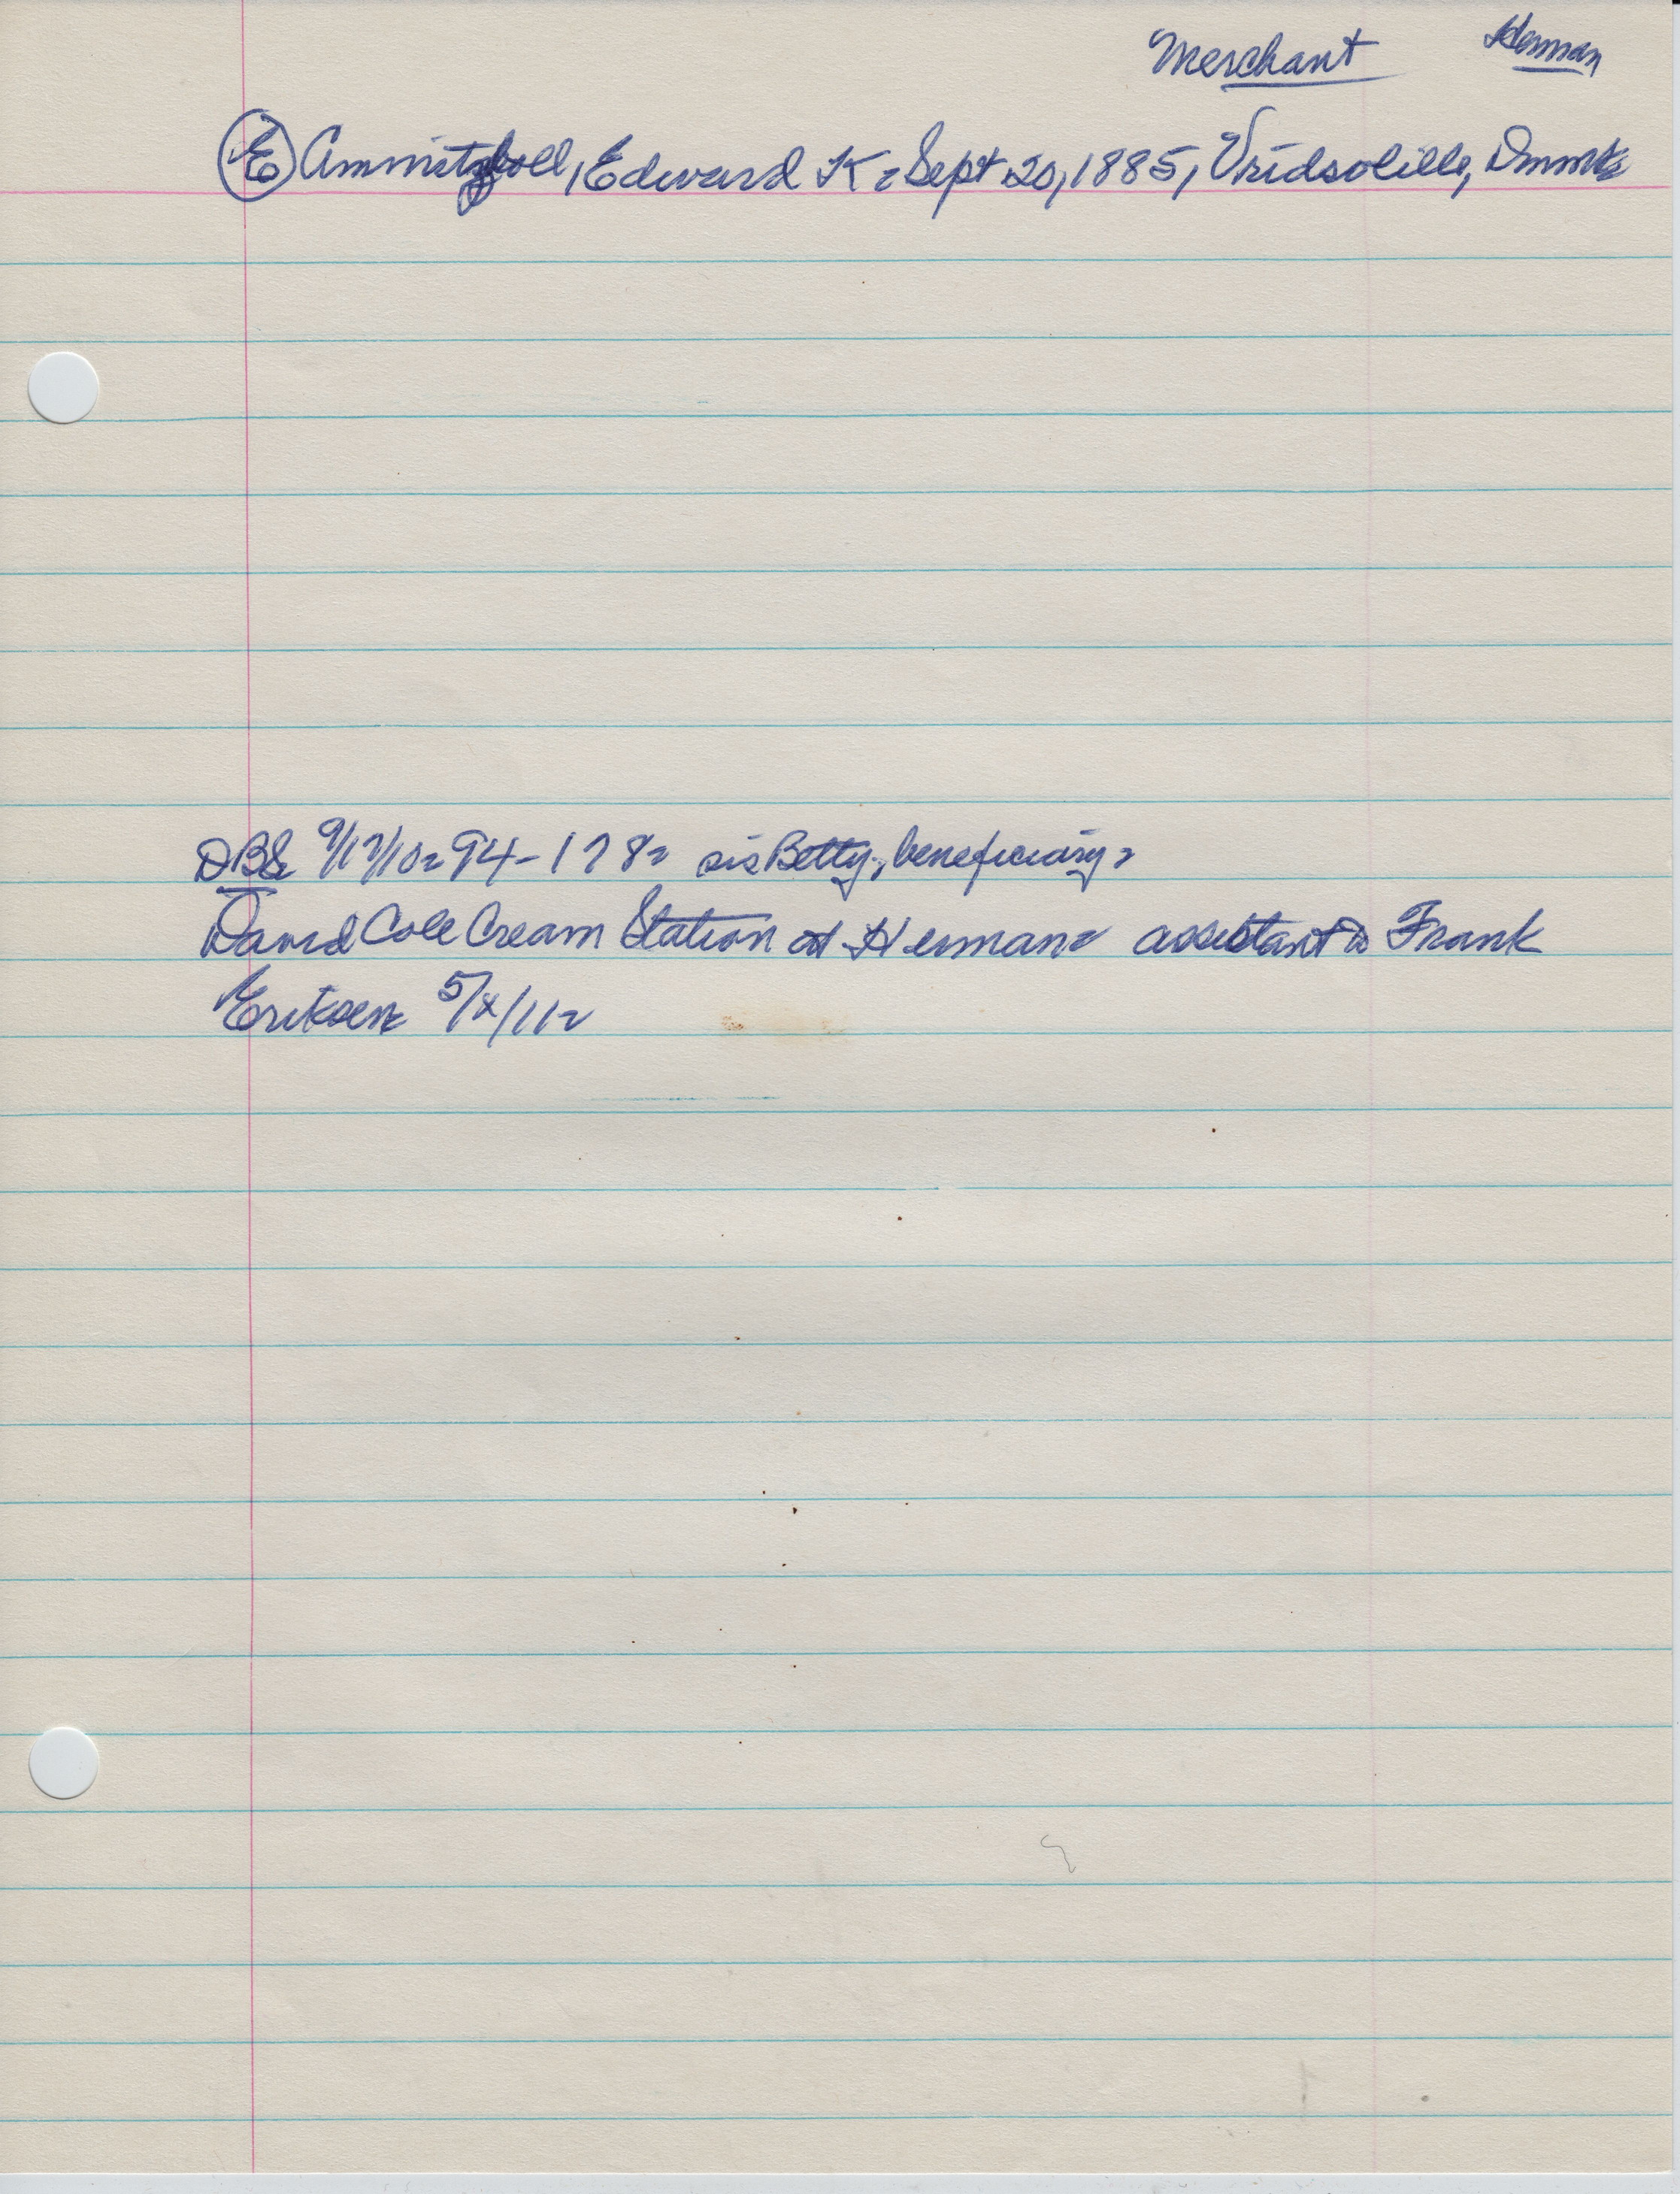 Merchant Herman
(E) Ammitzboll, Edward K - Sept 20, 1885, Vridsolille, Dnmk
DBS 9/17/10 - 94-178 - sis Betty, beneficiary -
David Cole Cream Station at Herman - assistant to Frank
Eriksen - 5/x/11 -